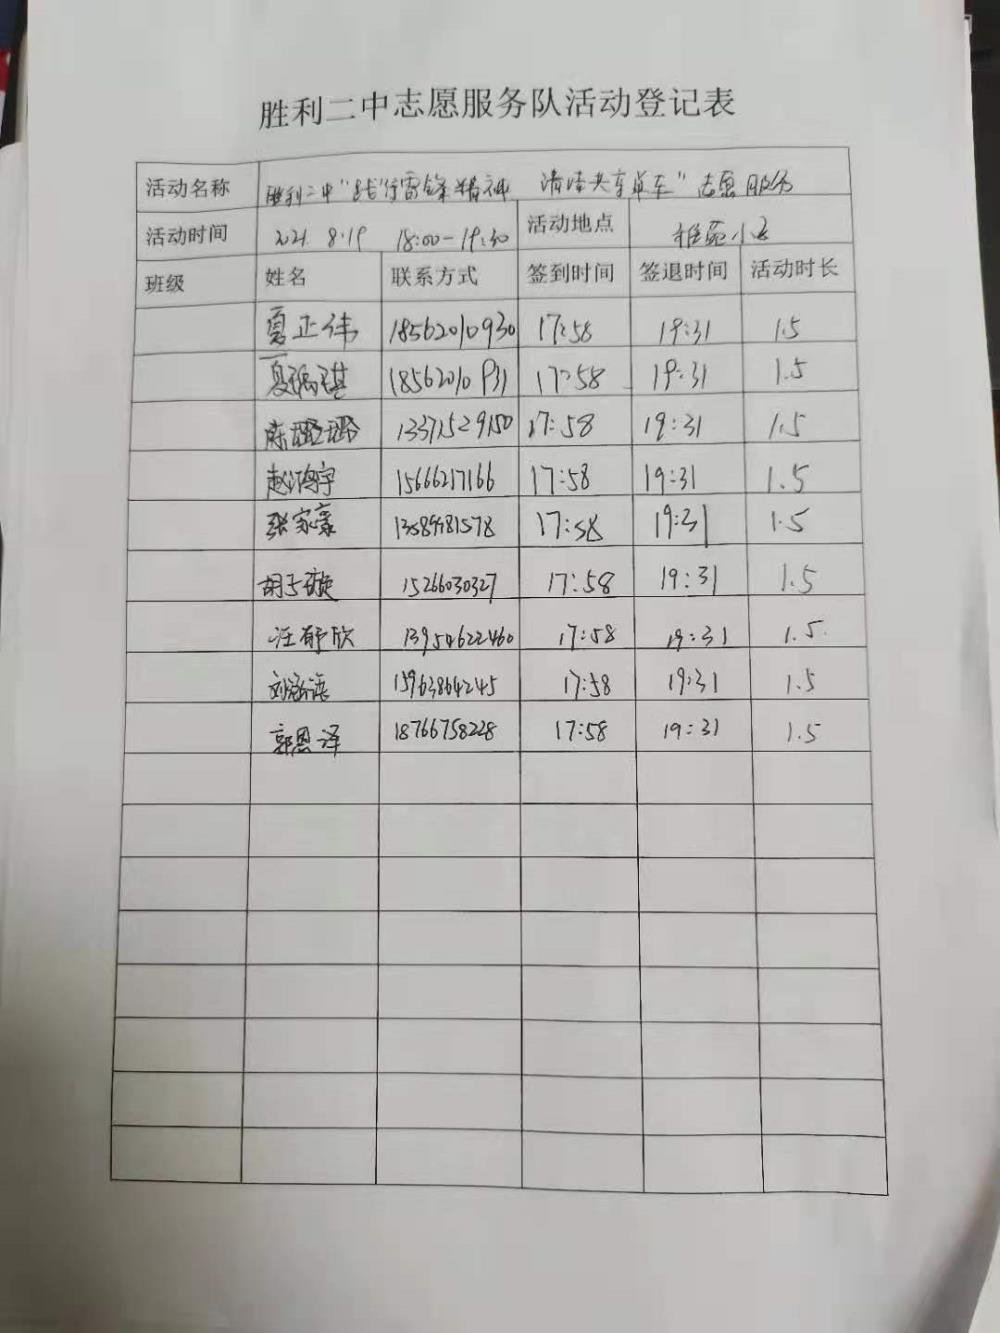 胜利二中志愿服务队活动登记表
活动名称 胜利二中"践行雷锋精神 清洁共享单车"志愿服务
活动时间 2021. 8.19 18:00-19:30 活动地点 雅苑小区
班级 姓名 联系方式 签到时间 签退时间 活动时长
夏正伟 18562010930 17:58 19:31 1.5
夏瑞琪 18562010931 17:58 19:31 1.5
陈璐璐 13371529150 17:58 19:31 1.5
赵鸿宇 15666217166 17:58 19:31 1.5
张家豪 13589981578 17:58 19:31 1.5
胡子璇 15266030327 17:58 19:31 1.5
汪舒欣 13954622460 17:58 19:31 1.5.
刘 15963864245 17:58 19:31 1.5
郭恩泽 18766758228 17:58 19:31 1.5